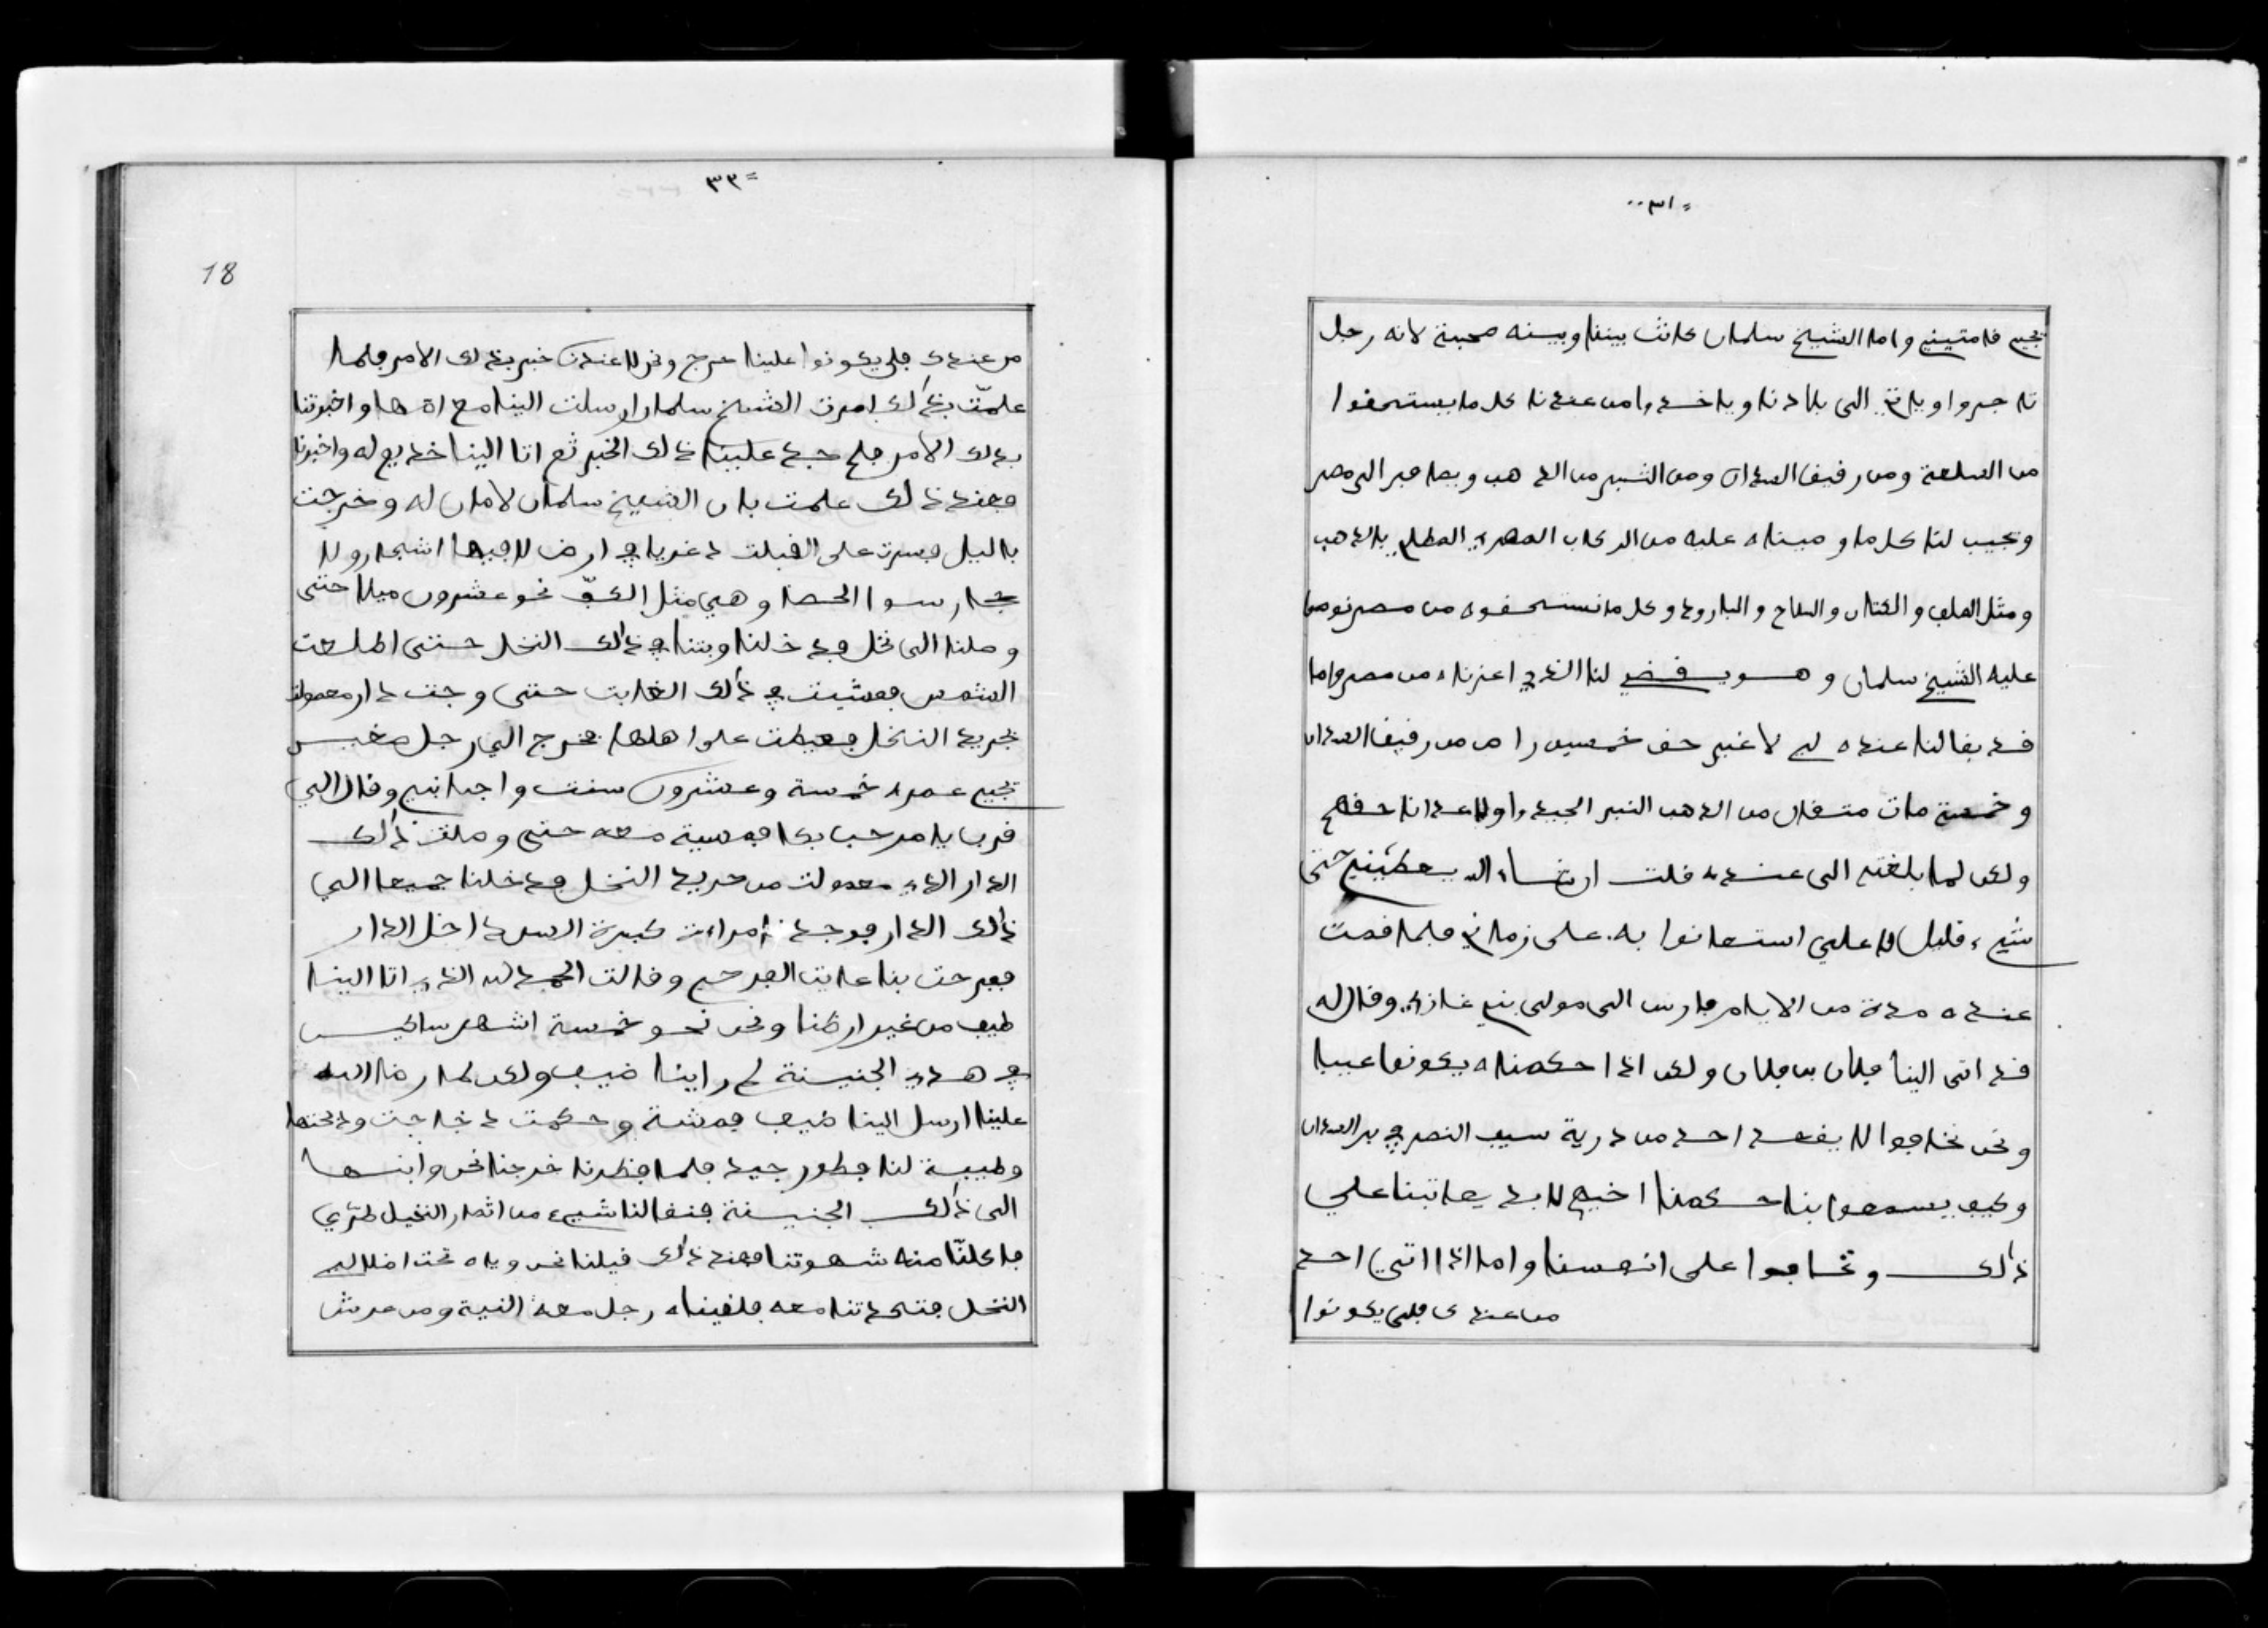 = ٣١ ..
نجيم فامتيني واما الشيخ سلمان كانت بيننا وبينه صحبة لانه رجل
تاجروا وياتي الى بلادنا وياخدوا من عندنا كل ما يستحقوا
من السلعة ومن رقيق السودان ومن التبر من الدهب ويصافر الى مصر
ونجيب لنا كل ما وصيناه عليه من الركاب المصري المطلي بالدهب
ومثل الملف والكتان والسلاح والبارود وكل ما نستحقوه من مصر نوصوا
عليه الشيخ سلمان وهو يقضي لنا الغرض من مصر واما
قد بقا لنا عنده لي لا غير حق خمسين راص من رقيق السودان
وخمسة مات متقال من الدهب التبر الجيد واولادعدانا حقهم
ولكن لما بلغت الى عنده قلت ان شاء الله يعطيني حتى
شيء قليل لاعلي استعانوا به على زماني فلما قمت
عنده مدة من الايام فارس الى مولى بني غازي وقال له
قد اتى الينا فلان بن فلان ولكن اذا حكمناه يكونوا عيبا
ونحن نخافوا لا يقعد احد من درية سيف النصر في بر السودان
وكيف يسمعوا بنا حكمنا اخيهم لابد يعاتبنا على
ذالك ونخافوا على انفسنا واما اذا اتى احد
من عندك فلن يكونوا
= ٣٢
18
من عندك فلن يكونوا علينا حرج ونحن لا عندنا خبر بذلك الامر فلما
علمت بذالك امرت الشيخ سلمان ارسلت الينا مع اختها واخبرتنا
بذلك الامر فلم جد علينا ذلك الخبر ثم اتا الينا خديم له واخبرنا
فعند ذالك علمت بان الشيخ سلمان لا امان له وخرجت
باليل وسرت على القبلت دغريا في ارض لا فيها اشجار ولا
حجار سوا الحصا وهي مثل الكف نحو عشرون ميلا حتى
وصلنا الى نخل فدخلنا وبتنا في ذالك النخل حتى اطلعت
الشمس فمشيت في ذالك الغابت حتى وجت دار معمولت
بجريد النخل فعيطت على اهلها فخرج الي رجل صغير
نجيم عمره خمسة وعشرون سنت واجابني وقال الي
قرب يا مرحبا بك فمسية معه حتى وصلت ذالك
الدار الدي معمولت من جريد النخل فدخلنا جميعا الي
ذالك الدار فوجدنا امراءة كبيرة السن داخل الدار
ففرحت بنا غايت الفرح وقالت الحمد لله الذي اتا الينا
ضيف من غير ارضنا ونحن نحو خمسة اشهر ساكنين
في هدي الجنينة لم راينا ضيف ولكن لما رضا الله
علينا ارسل الينا ضيف فمشة وحكمت دجاجت ودبحتها
وطيبة لنا فطور جيد فلما فطرنا خرجنا نحن وابنها
الى ذالك الجنينة فنقا لنا شيء من اثمار النخيل طري
فاكلنا منه شهوتنا فعند ذالك قيلنا نحن وياه تحت اضلال
النخل فتحدتنا معه فلقيناه رجل معه النية ومن عرش